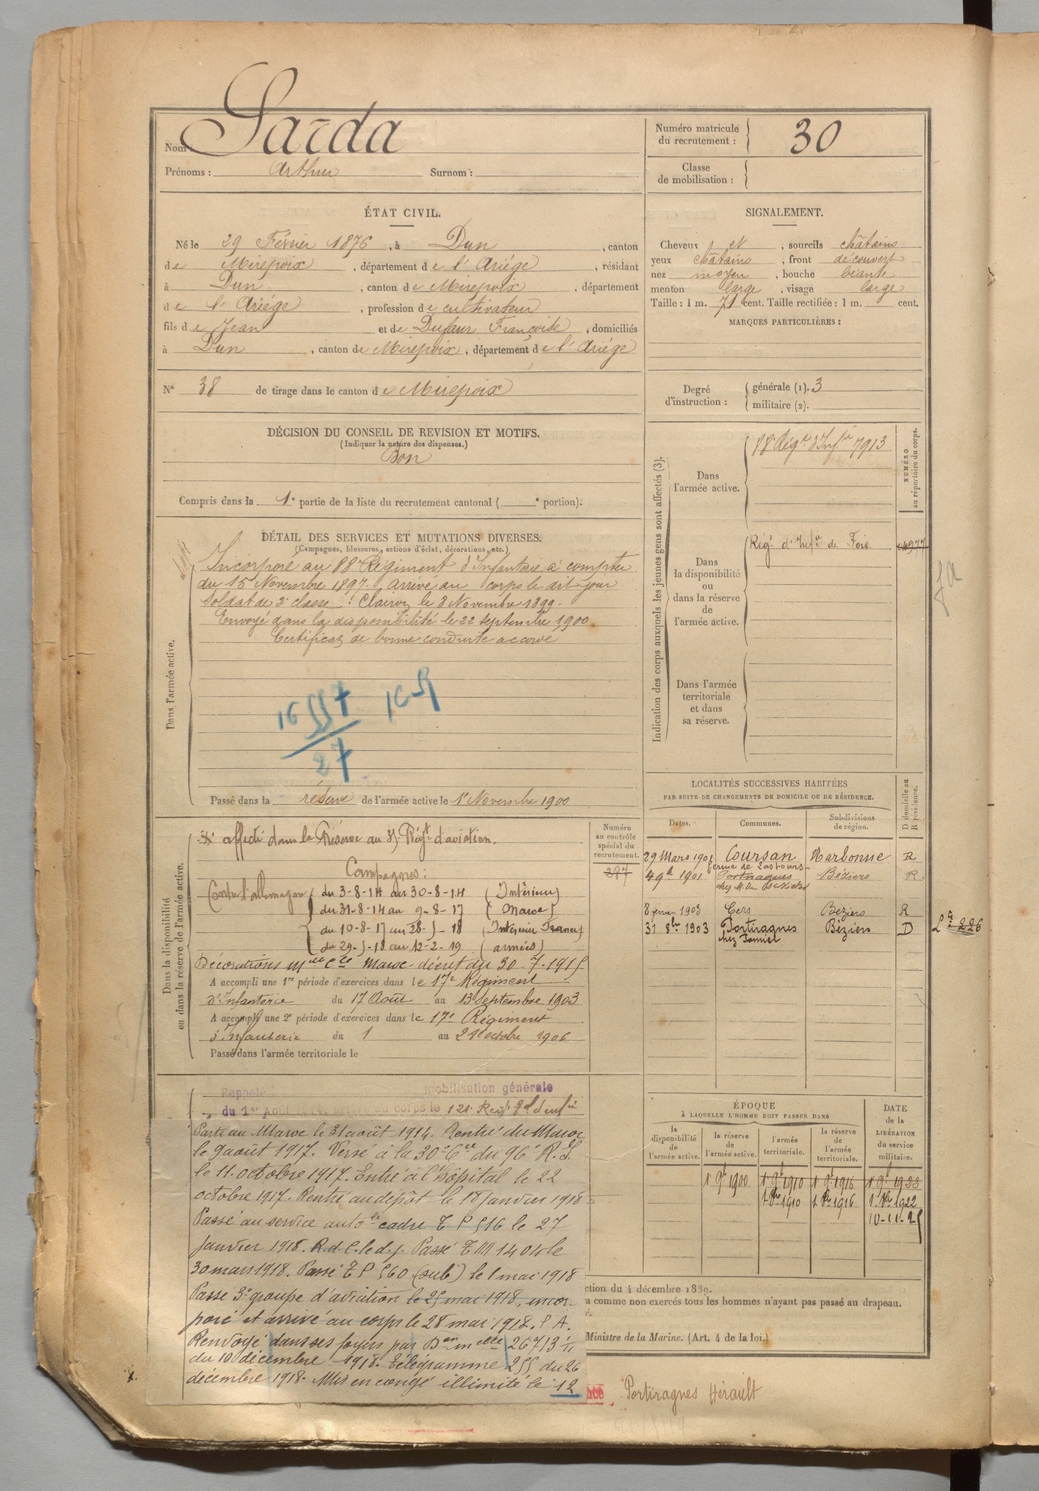 Nom : Sarda
Prénoms : Arthur Surnom :
Numéro matricule du recrutement : 30
Classe de mobilisation :
ÉTAT CIVIL.
Né le 29 Février 1876, à Dun, canton
de Mirepoix, département de l'Ariége, résidant
à Dun, canton de Mirepoix, département
de l'Ariége, profession de cultivateur
fils de Jean et de Dufaur Françoise, domiciliés
à Dun, canton de Mirepoix, département de l'Ariége
N° 38 de tirage dans le canton de Mirepoix
SIGNALEMENT.
Cheveux et , sourcils châtains
yeux châtains , front découvert
nez moyen , bouche béante
menton large , visage large
Taille : 1 m. 71 cent. Taille rectifiée : 1 m. cent.
MARQUES PARTICULIÈRES :
Degré d'instruction : générale (1). 3
militaire (2).
DÉCISION DU CONSEIL DE REVISION ET MOTIFS.
(Indiquer la nature des dispenses.)
Bon
Compris dans la 1e partie de la liste du recrutement cantonal ( e portion).
DÉTAIL DES SERVICES ET MUTATIONS DIVERSES.
(Campagnes, blessures, actions d'éclat, décorations, etc.)
Dans l'armée active.
Incorporé au 88e Régiment d'Infanterie à compter
du 15 Novembre 1897. arrivé au corps le dit jour
soldat de 2e classe. Clairon le 8 Novembre 1899.
Envoyé dans la disponibilité le 22 septembre 1900.
Certificat de bonne conduite accordé
16557
27
169
Passé dans la réserve de l'armée active le 1er Novembre 1900
Indication des corps auxquels les jeunes gens sont affectés (3).
NUMÉRO au répertoire du corps.
Dans l'armée active.
88e Régt d'Infie 7913
Dans la disponibilité ou dans la réserve de l'armée active.
Régt d'Infie de Foix
Dans l'armée territoriale et dans sa réserve.
Dans la disponibilité ou dans la réserve de l'armée active.
affecté dans la Réserve au 3e Régt d'aviation.
Numéro au contrôle spécial du recrutement.
397
Campagnes :
Contre l'allemagne du 3-8-14 au 30-8-14 (Intérieur)
du 31-8-14 au 9-8-17 (Maroc)
du 10-8-17 au 28-5-18 (Intérieur France)
du 29-5-18 au 12-2-19 (armées)
Décorations mlle cle Maroc décret du 30-7-1915
A accompli une 1re période d'exercices dans le 17e Régiment
d'Infanterie du 17 Août au 13 Septembre 1903
A accompli une 2e période d'exercices dans le 17e Régiment
d'Infanterie du 1 au 28 octobre 1906
Passé dans l'armée territoriale le
LOCALITÉS SUCCESSIVES HABITÉES
PAR SUITE DE CHANGEMENTS DE DOMICILE OU DE RÉSIDENCE.
Dates. Communes. Subdivisions de région. D domicile ou R résidence.
29 Mars 1901 Coursan Narbonne R
4 9bre 1901 Portiragnes Béziers R
8 février 1903 Cers Beziers R
31 8bre 1903 Portiragnes Béziers D
226
Rappelé mobilisation générale
du 1er Août au corps le 121 Régt
Parti au Maroc le 31 août 1914. Rentré du Maroc
le 9 aout 1917. Versé à la 30e Cie du 96e R.I.
le 11 octobre 1917. Entré à l'hôpital le 22
octobre 1917. Rentré au dépôt le 17 janvier 1918
Passé au service auto cadre T P 516 le 27
janvier 1918. R.d.C. le d.j. Passé T M 1401 le
30 mars 1918. Passé T P 560 (sub) le 1 mai 1918
Passé 3e groupe d'aviation le 25 mai 1918, incor-
poré et arrivé au corps le 28 mai 1918. S A.
Renvoyé dans ses foyers par Don mlle 26713 1/11
du 10 décembre 1918. Télégramme 255 du 26
décembre 1918. Mis en congé illimité le 12
Portiragnes Hérault
ÉPOQUE
À LAQUELLE L'HOMME DOIT PASSER DANS
la disponibilité de l'armée active. la réserve de l'armée active. l'armée territoriale. la réserve de l'armée territoriale.
DATE de la LIBÉRATION du service militaire.
1 9bre 1900 1 9bre 1910 1 9bre 1916 1 9bre 1922
1 8bre 1910 1 8bre 1916 1 8bre 1922
10-11-25
ction du 4 décembre 1889.
a comme non exercés tous les hommes n'ayant pas passé au drapeau.
Ministre de la Marine. (Art. 4 de la loi.)